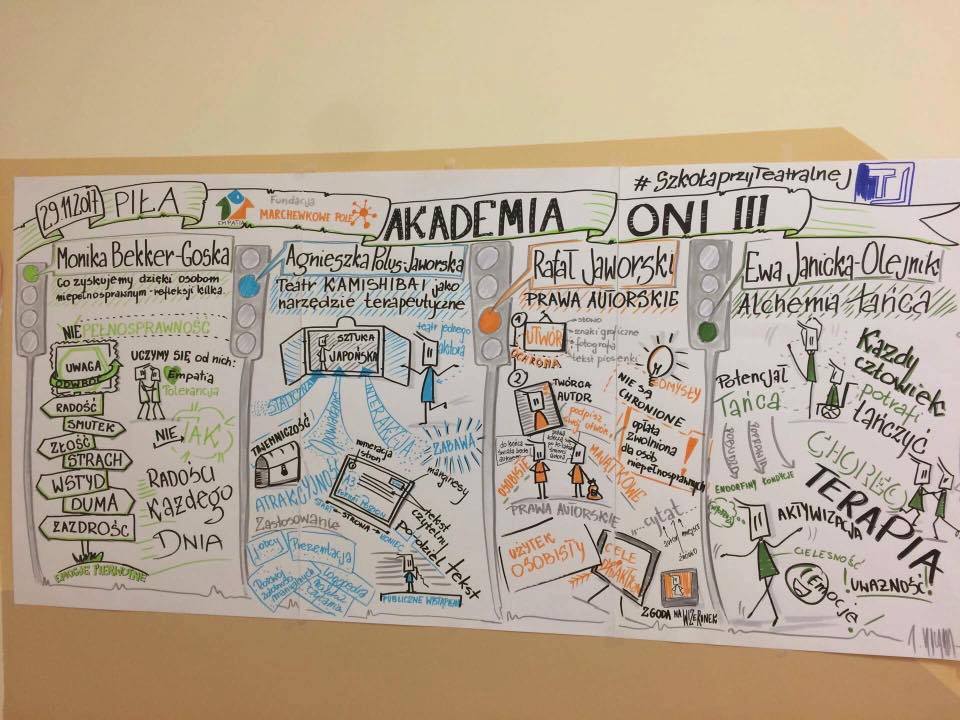 29.11.2017
PIŁA
EMPATIA
Fundacja
MARCHEWKOWE POLE
AKADEMIA ONI III
#SzkołaprzyTeatralnej
Monika Bekker-Goska
Co zyskujemy dzięki osobom
niepełnosprawnym - refleksji kilka.
NIEPEŁNOSPRAWNOŚĆ
UWAGA
OBJAZD
RADOŚĆ
SMUTEK
ZŁOŚĆ
STRACH
WSTYD
DUMA
ZAZDROŚĆ
EMOCJE PIERWOTNE
UCZYMY SIĘ od nich:
Empatia
Tolerancja
NIE, JAK
RADOŚCI
Każdego
DNIA
Agnieszka Polus-Jaworska
Teatr KAMISHIBAI jako
narzędzie terapeutyczne
SZTUKA
JAPOŃSKA
teatr jednego
aktora
INTERAKCJA
TAJEMNICZOŚĆ
ATRAKCYJNOŚĆ
ZABAWA
numeracja
stron
A3
marginesy
tekst
czytelny
Podziel tekst
START
STRONA
KONIEC
Zastosowanie
Prezentacja
Logopedia
PUBLICZNE WYSTĄPIENIE
Rafał Jaworski
PRAWA AUTORSKIE
1
UTWÓR
OCHRONA
słowo
znaki graficzne
fotografia
tekst piosenki
2
TWÓRCA
AUTOR
podpisz
swój utwór
NIE SĄ
CHRONIONE
POMYSŁY
opłata
zwolniona
dla osób
niepełnosprawnych
OSOBISTE
MAJĄTKOWE
PRAWA AUTORSKIE
UŻYTEK
OSOBISTY
CELE
cytat
ZGODA NA WIZERUNEK
Ewa Janicka-Olejnik
Alchemia tańca
Potencjał
Tańca
ENDORFINY
KONDYCJE
Każdy
człowiek
potrafi
tańczyć
CHOREO
TERAPIA
AKTYWIZACJA
CIELESNOŚĆ
Emocje!
!UWAŻNOŚĆ!